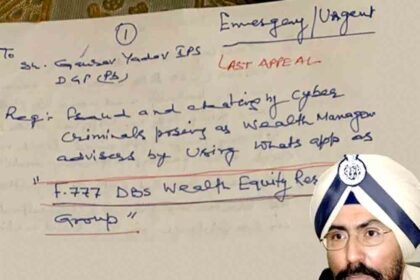 ①
Emergency/Urgent
To
Sh. Gaurav Yadav IPS
DGP (Pb)
LAST APPEAL
Reg:- Fraud and cheating by Cyber
Criminals posing as Wealth Manager
advisers by using Whats app as
"F-777 DBS Wealth Equity Res
Group"